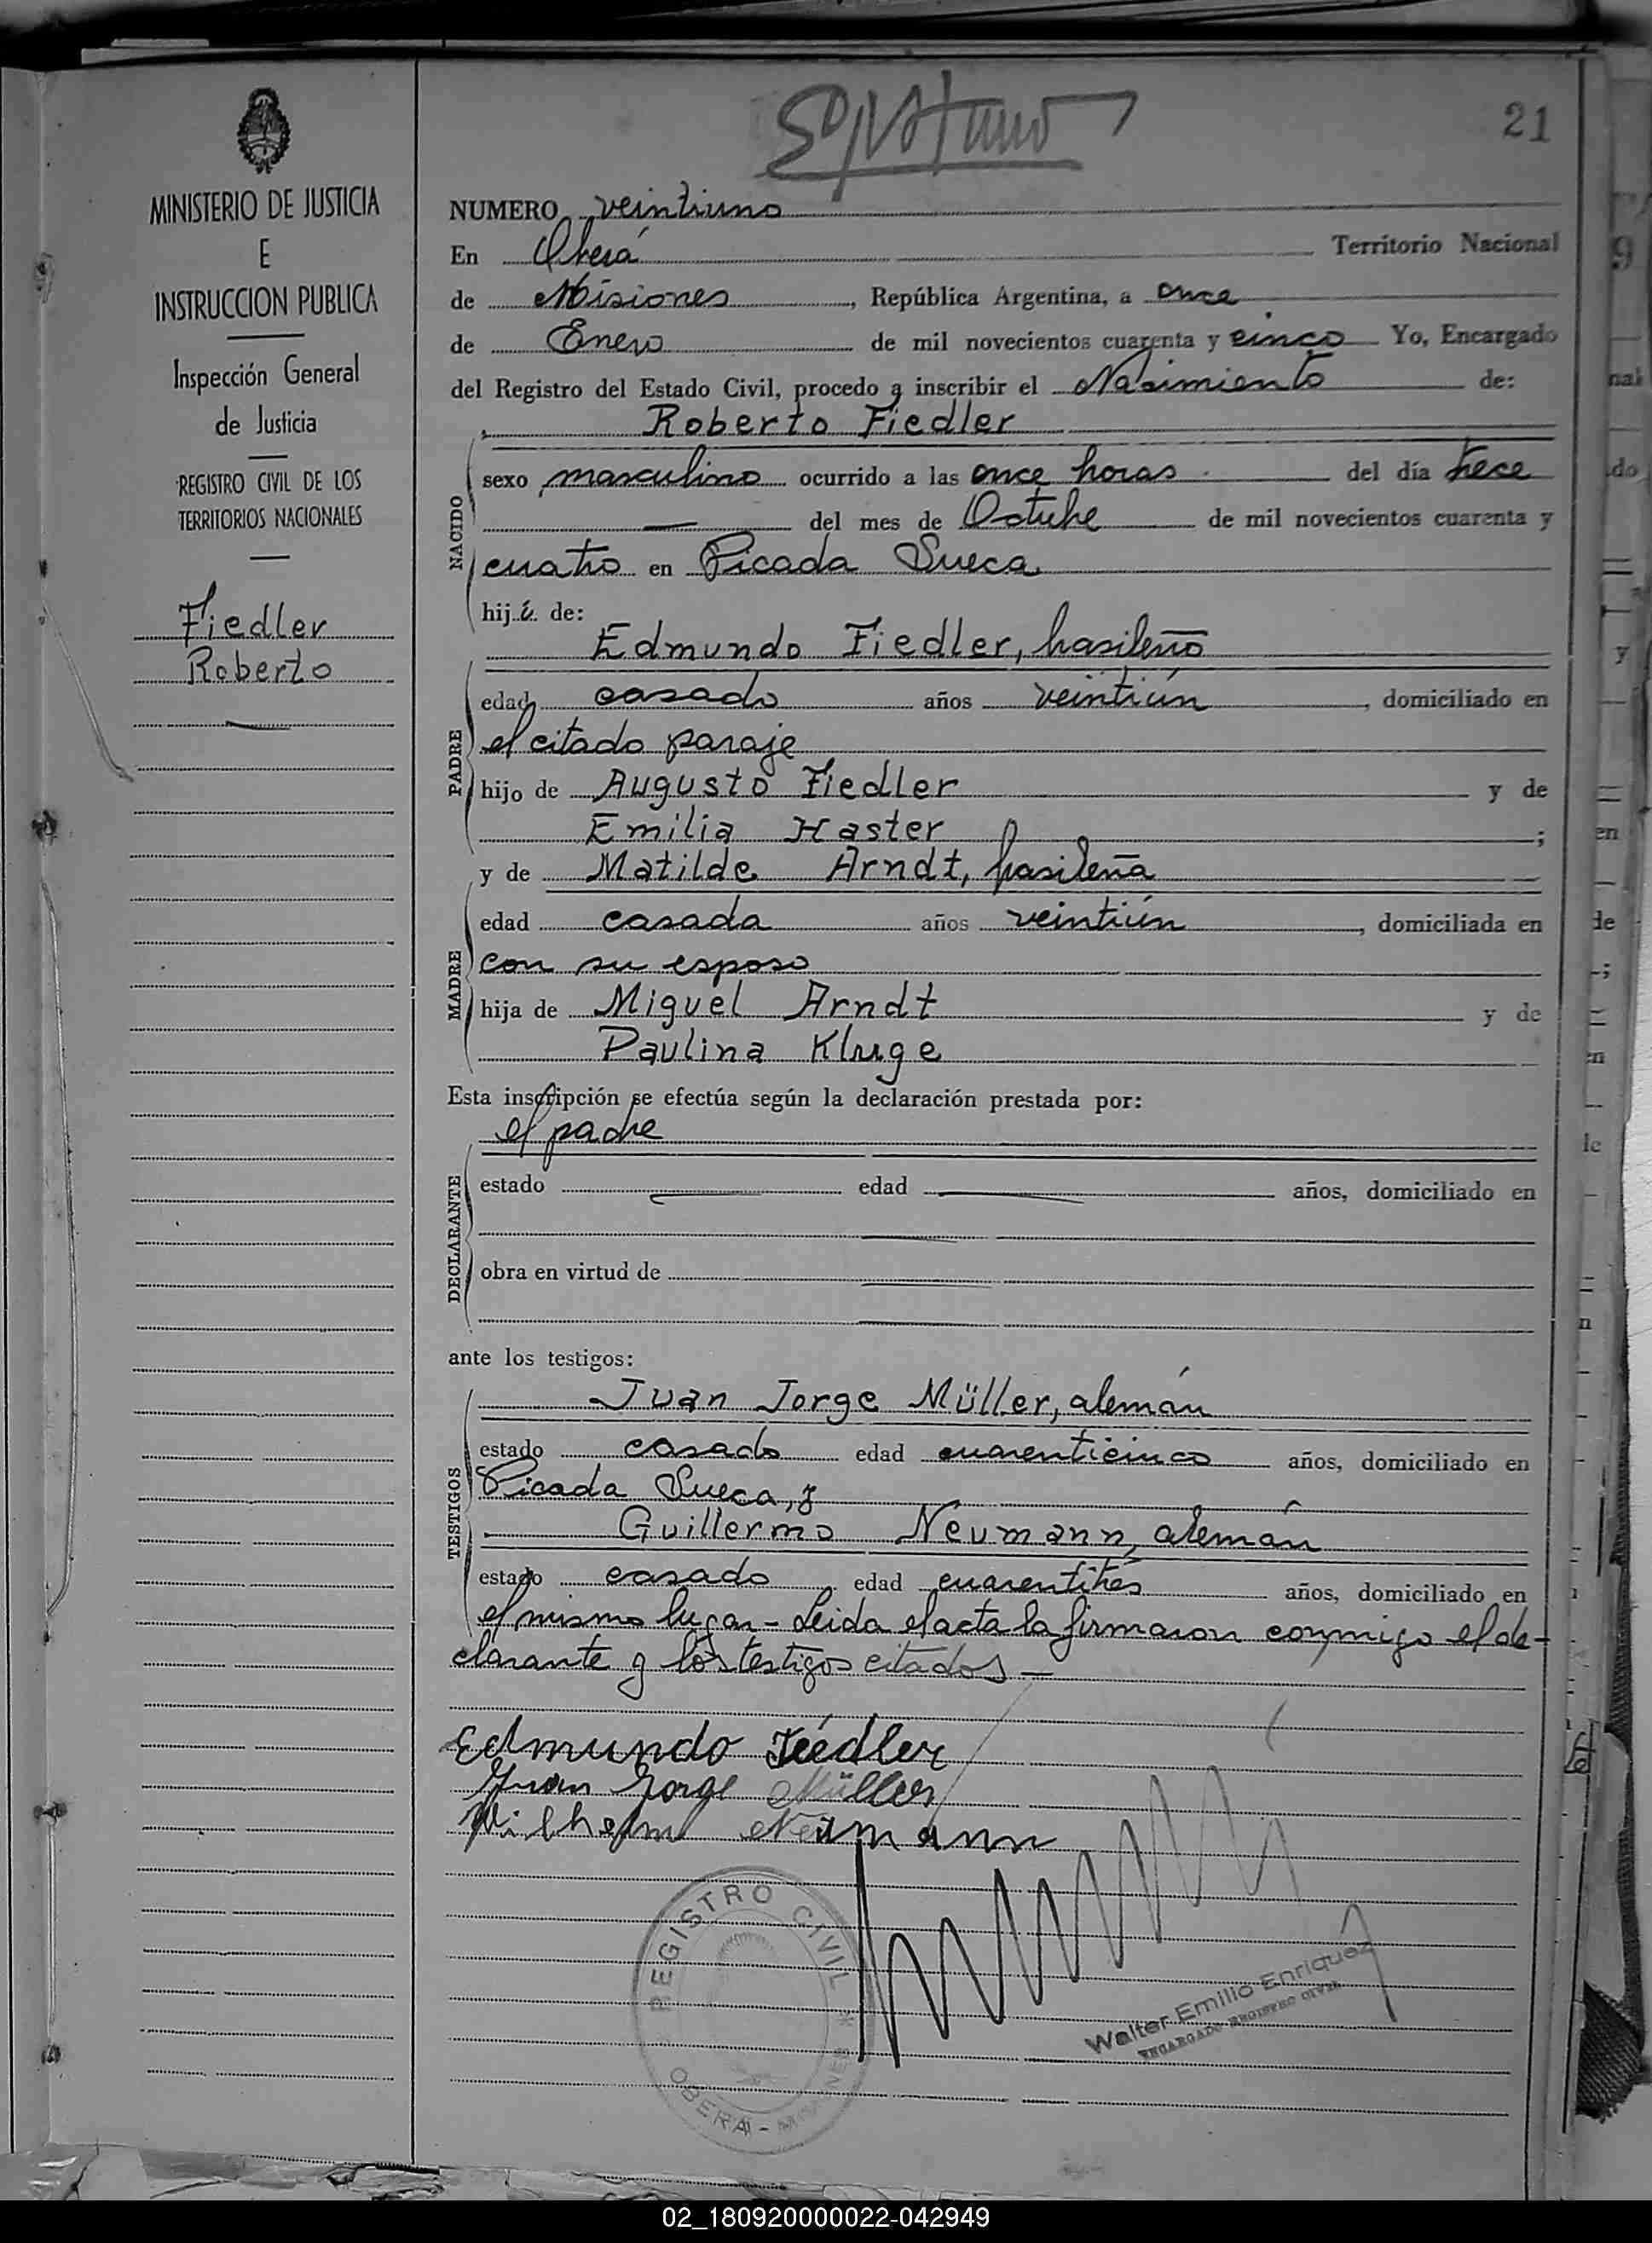 21
NUMERO veintiuno
En Oberá Territorio Nacional
de Misiones, República Argentina, a once
de Enero de mil novecientos cuarenta y cinco Yo, Encargado
del Registro del Estado Civil, procedo a inscribir el Nacimiento de:
Roberto Fiedler
NACIDO
sexo masculino ocurrido a las once horas del día trece
del mes de Octubre de mil novecientos cuarenta y
cuatro en Picada Sueca
hijo de:
Edmundo Fiedler, brasileño
PADRE
edad casado años veintiún, domiciliado en
el citado paraje
hijo de Augusto Fiedler y de
Emilia Haster;
y de Matilde Arndt, brasileña
MADRE
edad casada años veintiún, domiciliada en
con su esposo
hija de Miguel Arndt y de
Paulina Kluge
Esta inscripción se efectúa según la declaración prestada por:
el padre
DECLARANTE
estado edad años, domiciliado en
obra en virtud de
ante los testigos:
Juan Jorge Müller, alemán
TESTIGOS
estado casado edad cuarenticinco años, domiciliado en
Picada Sueca, y
Guillermo Neumann, alemán
estado casado edad cuarentitrés años, domiciliado en
el mismo lugar - Leida el acta la firmaron conmigo el de-
clarante y los testigos citados -
Edmundo Fiedler
Juan Jorge Müller
Wilhelm Neumann
REGISTRO CIVIL
OBERÁ - MISIONES
Walter Emilio Enriquez
ENCARGADO REGISTRO CIVIL
MINISTERIO DE JUSTICIA
E
INSTRUCCION PUBLICA
Inspección General
de Justicia
REGISTRO CIVIL DE LOS
TERRITORIOS NACIONALES
Fiedler
Roberto
02_180920000022-042949